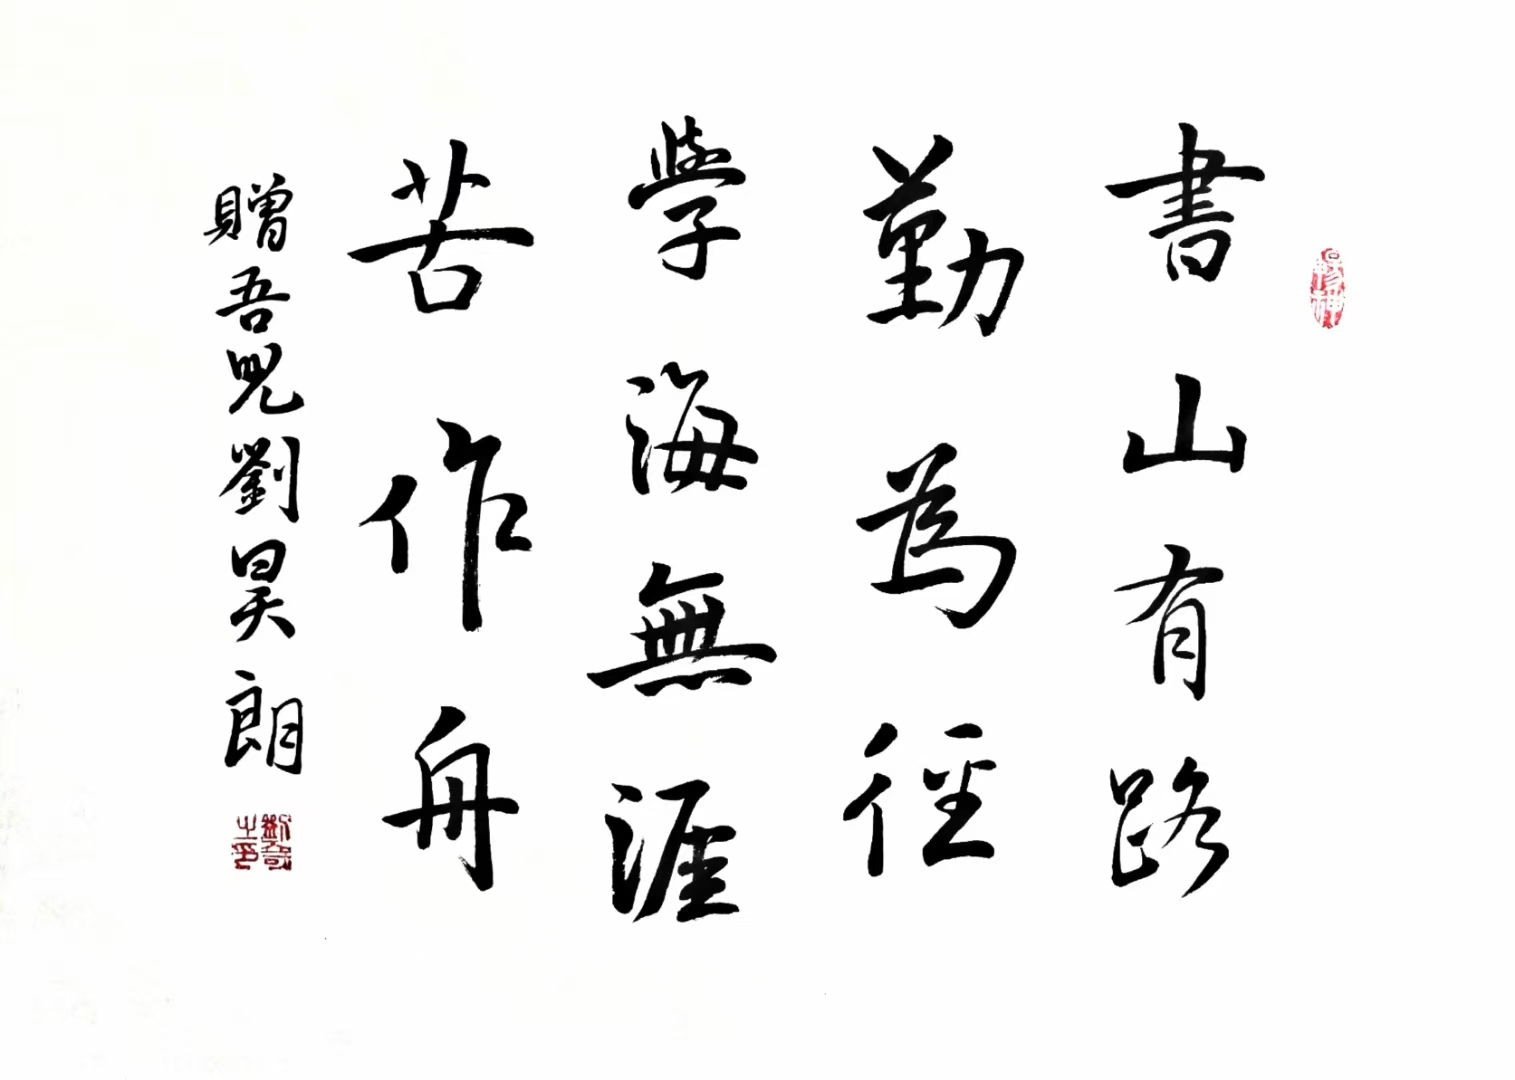 書山有路
勤為徑
學海無涯
苦作舟
贈吾兒劉昊朗